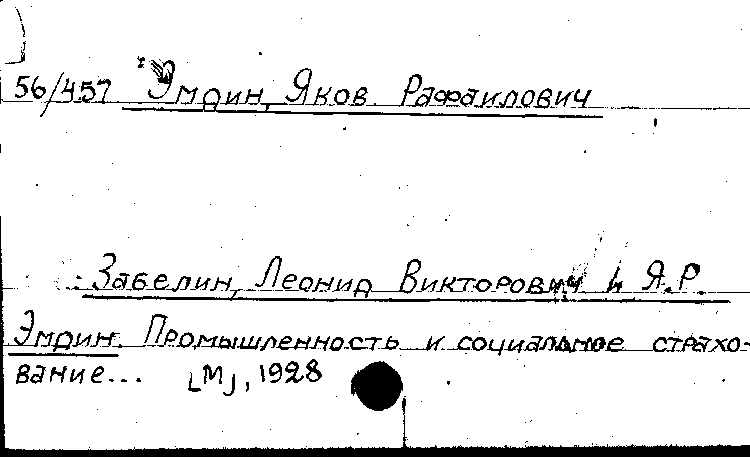 56/457 Эмдин, Яков Рафаилович
Забелин, Леонид Викторович и Я.Р.
Эмдин. Промышленность и социальное страхо-
вание... [М], 1928